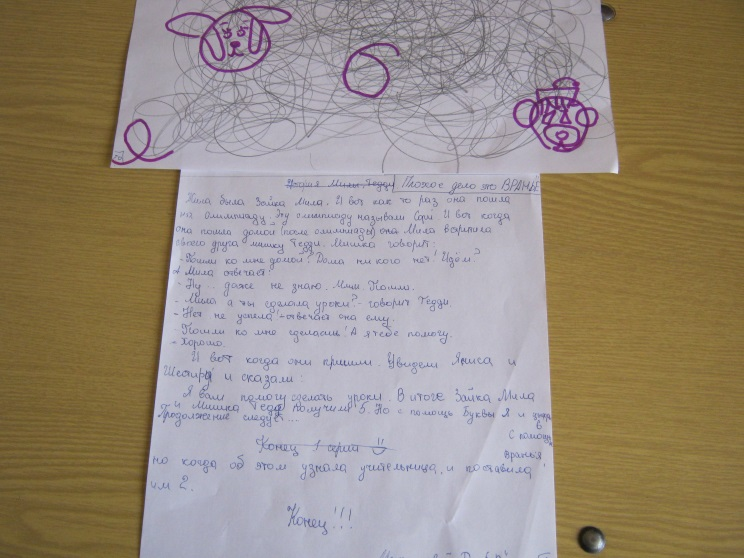 6
Я
История Милы, Тедди Плохое дело это ВРАНЬЁ
Жила была Зайка Мила. И вот как то раз она пошла
на олимпиаду. Эту олимпиаду называли И вот когда
она пошла домой (после олимпиады) она Мила встретила
своего друга мишку Тедди. Мишка говорит:
- Пошли ко мне домой? Дома ни кого нет! Идём?
А Мила отвечает:
- Ну.. даже не знаю. Ммм Пошли.
- Мила а ты сделала уроки? - говорит Тедди.
- Нет не успела - отвечает она ему.
- Пошли ко мне сделаешь! А я тебе помогу.
- Хорошо.
И вот когда они пришли. Увидели и
и сказали:
Я вам помогу сделать уроки. В итоге Зайка Мила
и Мишка Тедди получили 5. Но с помощь Буквы Я и
Продолжение следует...
в
с помощь
вранья!
Конец 1 серии
но когда об этом узнала учительница, и поставила
им 2.
Конец!!!